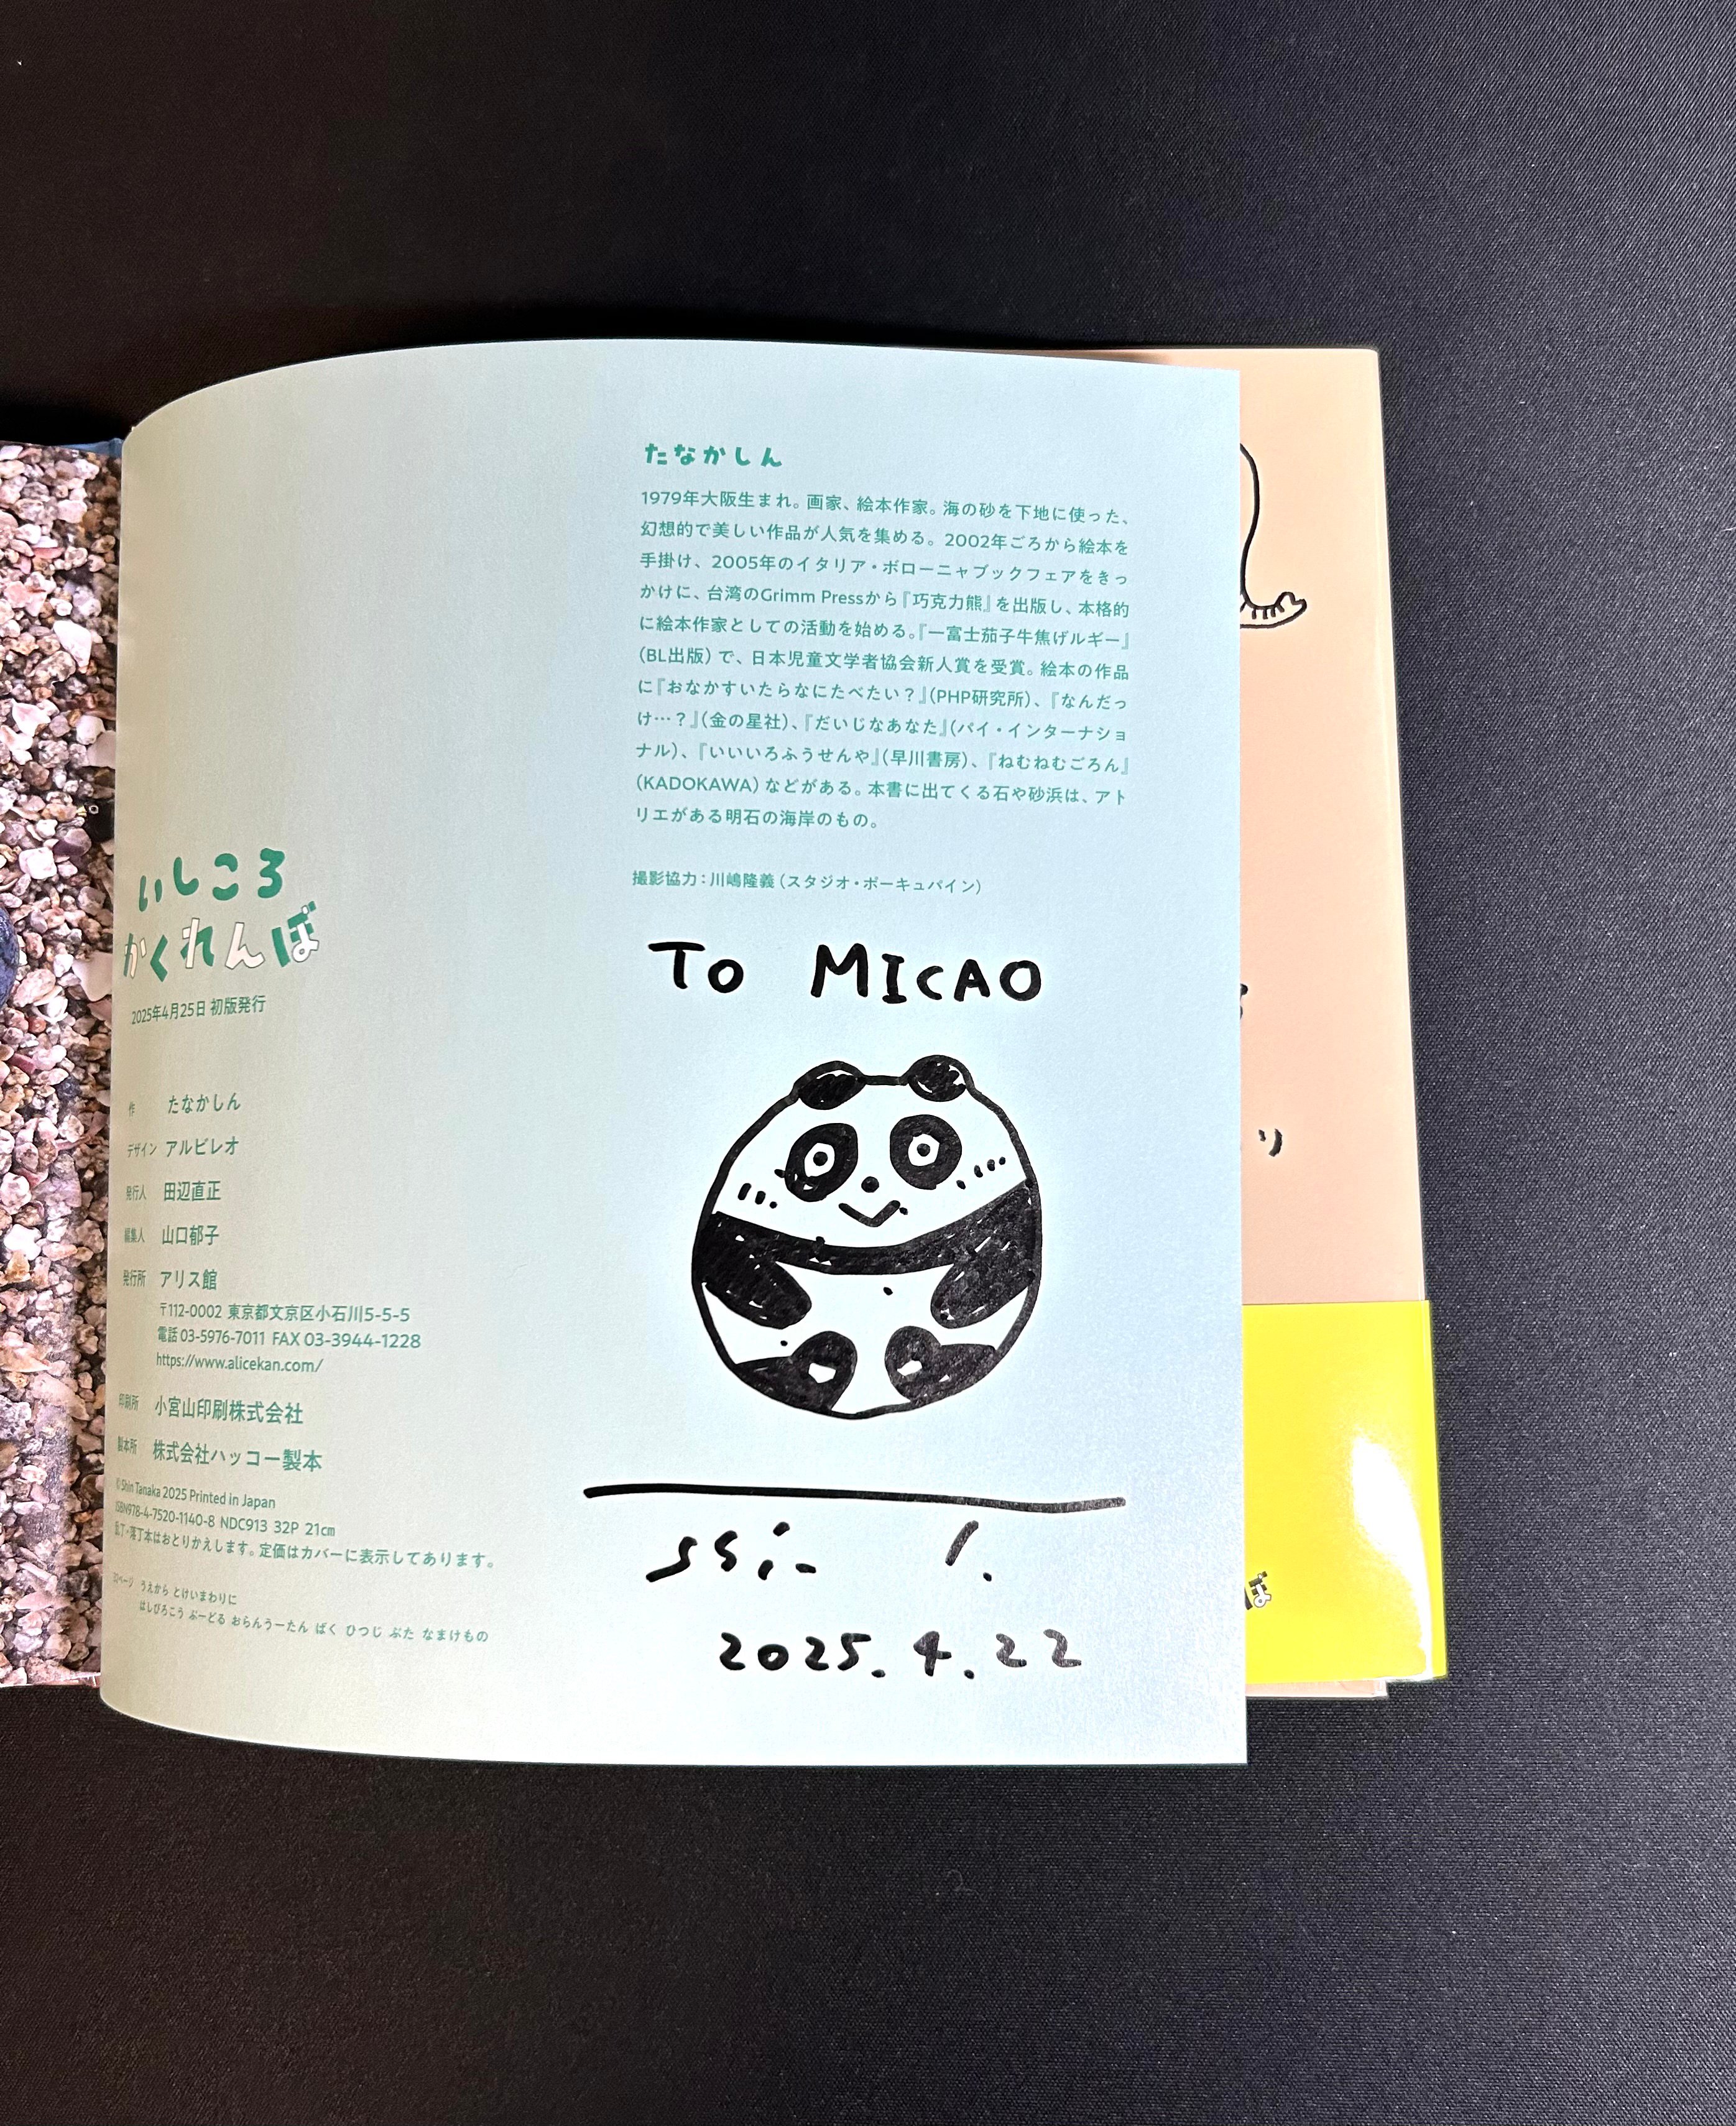 たなかしん
1979年大阪生まれ。画家、絵本作家。海の砂を下地に使った、
幻想的で美しい作品が人気を集める。2002年ごろから絵本を
手掛け、2005年のイタリア・ボローニャブックフェアをきっ
かけに、台湾のGrimm Pressから『巧克力熊』を出版し、本格的
に絵本作家としての活動を始める。『一富士茄子牛焦げルギー』
(BL出版)で、日本児童文学者協会新人賞を受賞。絵本の作品
に『おなかすいたらなにたべたい?』(PHP研究所)、『なんだっ
け…?』(金の星社)、『だいじなあなた』(パイ・インターナショ
ナル)、『いいいろふうせんや』(早川書房)、『ねむねむごろん』
(KADOKAWA)などがある。本書に出てくる石や砂浜は、アト
リエがある明石の海岸のもの。
撮影協力:川嶋隆義(スタジオ・ポーキュパイン)
TO MICAO
2025.4.22
いしころ
かくれんぼ
2025年4月25日 初版発行
作 たなかしん
デザイン アルビレオ
発行人 田辺直正
編集人 山口郁子
発行所 アリス館
〒112-0002 東京都文京区小石川5-5-5
電話 03-5976-7011 FAX 03-3944-1228
https://www.alicekan.com/
印刷所 小宮山印刷株式会社
製本所 株式会社ハッコー製本
©Shin Tanaka 2025 Printed in Japan
ISBN978-4-7520-1140-8 NDC913 32P 21cm
乱丁・落丁本はおとりかえします。定価はカバーに表示してあります。
うえから とけいまわりに
はしびろこう ぷーどる おらんうーたん ばく ひつじ ぶた なまけもの
り
ぼ